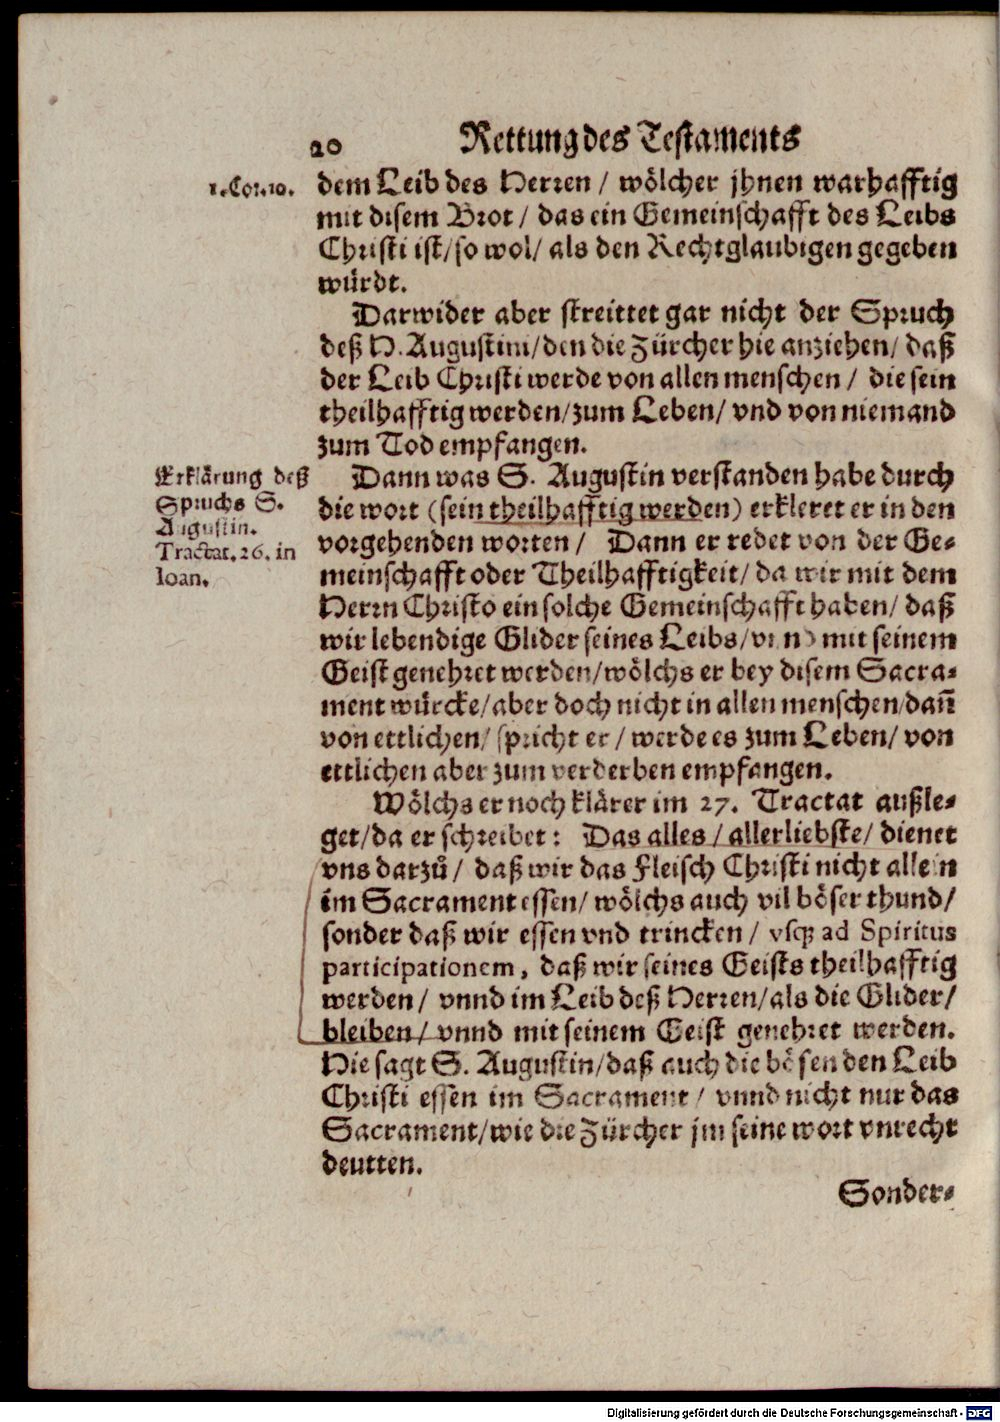 20 Rettung des Testaments
1. Cor. 10.
dem Leib des Herren / wölcher jhnen warhafftig
mit disem Brot / das ein Gemeinschafft des Leibs
Christi ist / so wol / als den Rechtglaubigen gegeben
würdt.
Darwider aber streittet gar nicht der Spruch
deß H. Augustini / den die Zürcher hie anziehen / daß
der Leib Christi werde von allen menschen / die sein
theilhafftig werden / zum Leben / vnd von niemand
zum Tod empfangen.
Erklärung deß
Spruchs S.
Augustin.
Tractat. 26. in
Ioan.
Dann was S. Augustin verstanden habe durch
die wort (sein theilhafftig werden) erkleret er in den
vorgehenden worten / Dann er redet von der Ge-
meinschafft oder Theilhafftigkeit / da wir mit dem
Herrn Christo ein solche Gemeinschafft haben / daß
wir lebendige Glider seines Leibs / vnnd mit seinem
Geist genehret werden / wölchs er bey disem Sacra-
ment würcke / aber doch nicht in allen menschen / dañ
von ettlichen / spricht er / werde es zum Leben / von
ettlichen aber zum verderben empfangen.
Wölchs er noch klärer im 27. Tractat außle-
get / da er schreibet: Das alles / allerliebste / dienet
vns darzů / daß wir das Fleisch Christi nicht allein
im Sacrament essen / wölchs auch vil böser thund /
sonder daß wir essen vnd trincken / vsq; ad Spiritus
participationem, daß wir seines Geists theilhafftig
werden / vnnd im Leib deß Herren / als die Glider /
bleiben / vnnd mit seinem Geist genehret werden.
Hie sagt S. Augustin / daß auch die bösen den Leib
Christi essen im Sacrament / vnnd nicht nur das
Sacrament / wie die Zürcher jm seine wort vnrecht
deutten.
Sonder-
Digitalisierung gefördert durch die Deutsche Forschungsgemeinschaft - DFG